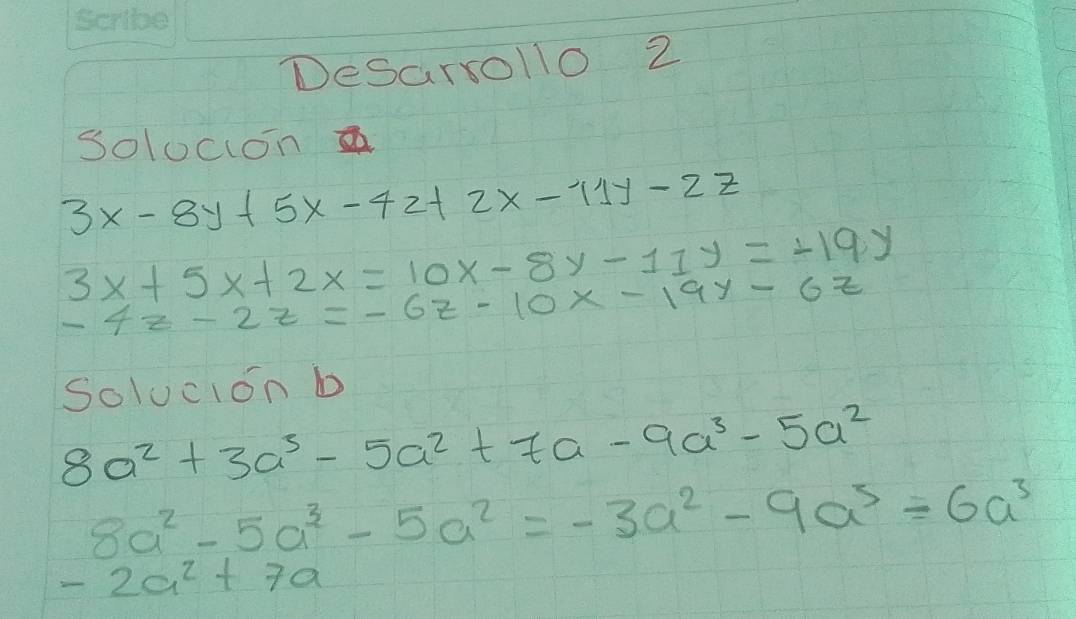 Scribe
Desarrollo 2
Solocion a
3x - 8y + 5x - 4z + 2x - 11y - 2z
3x + 5x + 2x = 10x - 8y - 11y = -19y
- 4z - 2z = - 6z - 10x - 19y - 6z
Solución b
8a² + 3a³ - 5a² + 7a - 9a³ - 5a²
8a² - 5a³ - 5a² = - 3a² - 9a³ = 6a³
- 2a² + 7a